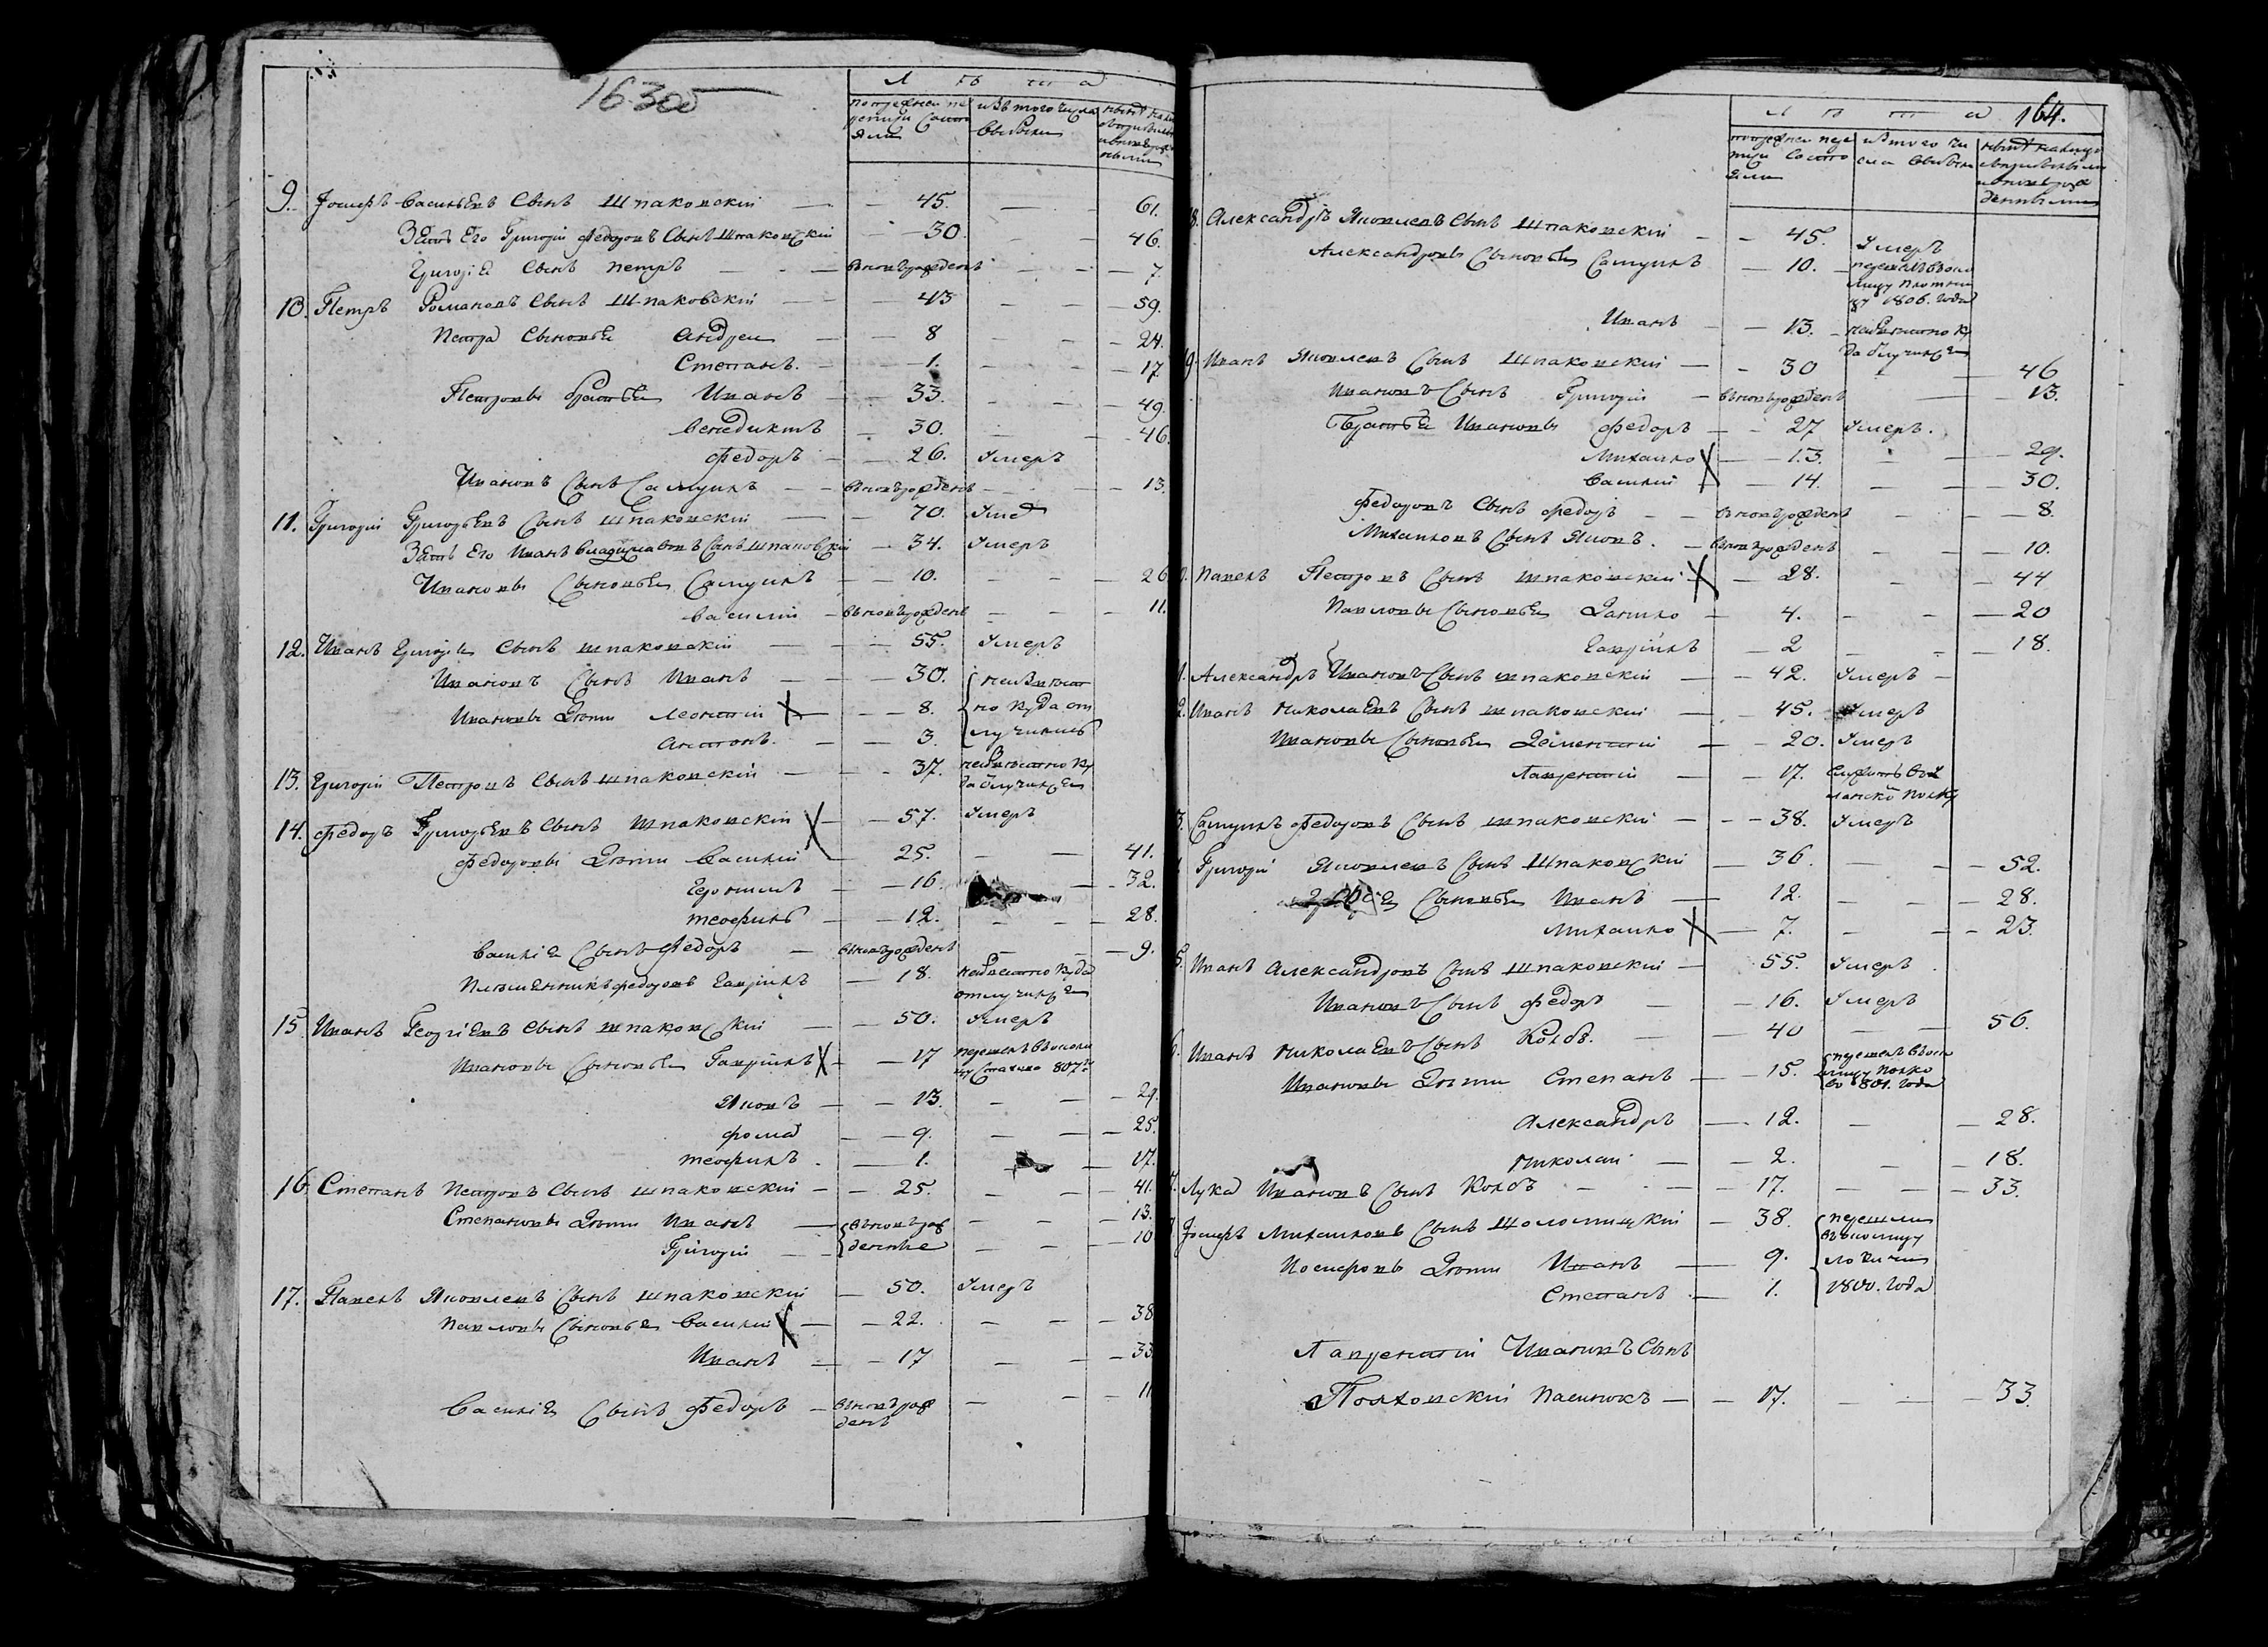 163 об
Л ѣ т а
по прежней ре
ревизіи состо
яли
изъ того числа
выбыли
9. Іосифъ Васильевъ Сынъ Шпаковскій — 45. — 61.
Зять Его Григорій Федоровъ Сынъ Шпаковскій — 30. — 46.
Григорія Сынъ Петръ — вновь рожденъ — 7.
10. Петръ Романовъ Сынъ Шпаковскій — 43 — 59.
Петра Сыновья Андреи — 8 — 24.
Степанъ. — 1. — 17
Петровы братья Иванъ — 33. — 49.
Венедиктъ — 30. — 46.
Федоръ — 26. Умеръ
Ивановъ Сынъ Самуилъ — вновь рожденъ — 13.
11. Григорій Григорьевъ Сынъ Шпаковскій — 70. Умеръ
Зять Его Иванъ Владиславовъ Сынъ Шпаковскій — 34. Умеръ
Ивановы Сыновья Самуилъ — 10. — 26
Василій — вновь рожденъ — 11.
12. Иванъ Григорія Сынъ Шпаковскій — 55. Умеръ
Ивановъ Сынъ Иванъ — 30. неизвѣст
Ивановы Дѣти Леонтій — 8. но куда от
Антонъ. — 3. лучились
13. Григорій Петровъ Сынъ Шпаковскій — 37. неизвѣстно ку
да отлучился
14. Федоръ Григорьевъ Сынъ Шпаковскій — 57. Умеръ
Федоровы Дѣти Василій 25. — 41.
Геронимъ — 16. — 32.
Теофилъ — 12. — 28.
Василія Сынъ Федоръ — вновь рожденъ — 9.
Племянникъ Федоровъ Гаврiилъ — 18. неизвѣстно куда
отлучился
15. Иванъ Георгіевъ Сынъ Шпаковскій — 50. Умеръ
Ивановы Сыновья Гаврiилъ — 17 перешелъ въ околи
цу 807го
Яковъ — 13. — 29.
Фома — 9. — 25.
Теофилъ. — 1. — 17.
16. Степанъ Петровъ Сынъ Шпаковскій — 25. — 41.
Степановы Дѣти Иванъ — вновь рож — 13.
Григорій — денные — 10
17. Павелъ Яковлевъ Сынъ Шпаковскій — 50. Умеръ
Павловы Сыновья Василій — 22. — 38
Иванъ — 17 — 33
Василія Сынъ Федоръ — вновь рож — 11
денъ
164.
Л ѣ т а
по прежней реви
зіи состо
яли
изъ того чи
сла выбыли
нынѣ на лицо
съ прибылыми
и вновь рож
денными
8. Александръ Яковлевъ Сынъ Шпаковскій — 45. Умеръ
Александровы Сыновья Самуилъ — 10. — перешелъ въ око
лицу
1806. года
Иванъ — 13. — неизвѣстно ку
да отлучился
9. Иванъ Яковлевъ Сынъ Шпаковскій — 30 — 46
Ивановъ Сынъ Григорій — вновь рожденъ — 13.
Братья Ивановы Федоръ — 27 Умеръ.
Михайло — 13. — 29.
Василій — 14. — 30.
Федоровъ Сынъ Федоръ — вновь рожденъ — 8.
Михайловъ Сынъ Яковъ. — вновь рожденъ — 10.
0. Павелъ Петровъ Сынъ Шпаковскій — 28. — 44
Павловы Сыновья Данило — 4. — 20
Гаврiилъ — 2 — 18.
1. Александръ Ивановъ Сынъ Шпаковскій — 42. Умеръ —
2. Иванъ Николаевъ Сынъ Шпаковскій — 45. Умеръ
Ивановы Сыновья Дементій — 20. Умеръ
Лаврентій — 17. служитъ въ
полку
3. Самуилъ Федоровъ Сынъ Шпаковскій — 38. Умеръ
Григорій Яковлевъ Сынъ Шпаковскій — 36. — 52.
Сыновья Иванъ — 12. — 28.
Михайло — 7. — 23.
5. Иванъ Александровъ Сынъ Шпаковскій — 55. Умеръ
Ивановъ Сынъ Федоръ — 16. Умеръ
6. Иванъ Николаевъ Сынъ Колбъ. — 40 — 56.
Ивановы Дѣти Степанъ — 15. перешелъ въ око
лицу
1801. года
Александръ — 12. — 28.
Николай — 2. — 18.
7. Лука Ивановъ Сынъ Колбъ — 17. — 33.
Іосифъ Михайловъ Сынъ Шоломицкій — 38. перешли
Иосифовы Дѣти Иванъ — 9. въ околицу
Степанъ — 1. 1800. года
Лаврентій Ивановъ Сынъ
Полховскій пасынокъ — 17. — 33.